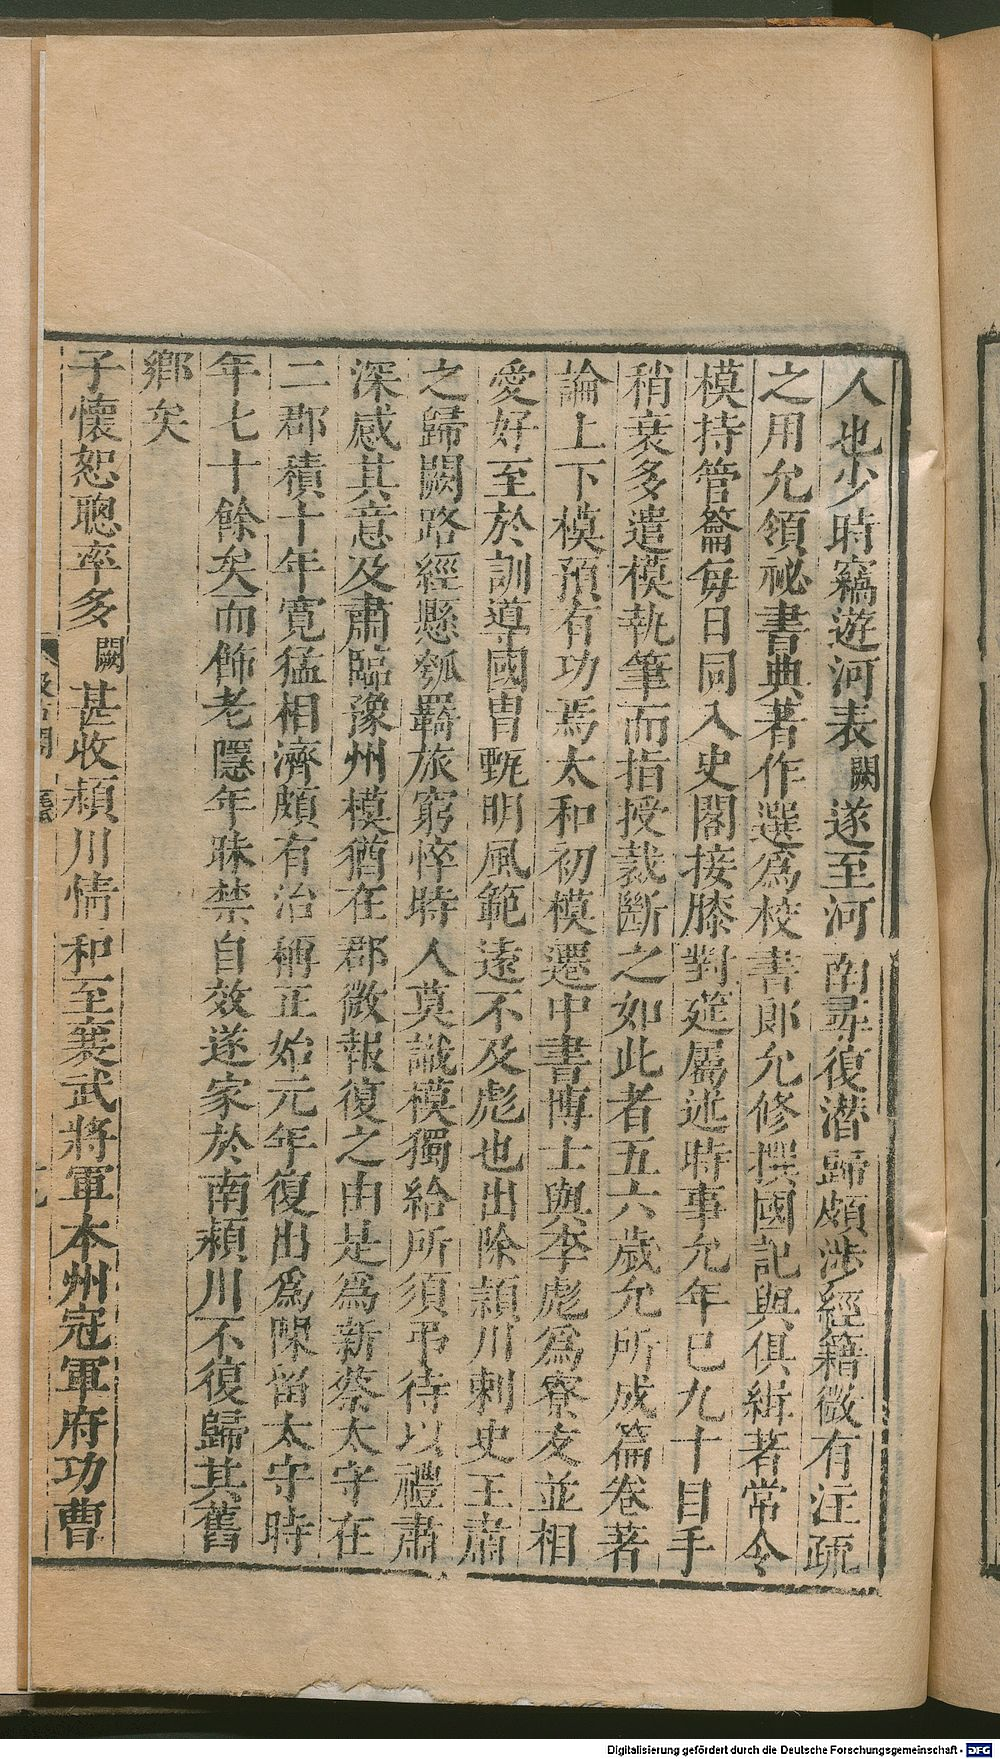 人也少時竊遊河表闕遂至河南尋復潛歸頗涉經籍微有注疏
之用允領祕書典著作選為校書郎允修撰國記與俱緝著常令
模持管籥每日同入史閣接膝對筵屬述時事允年已九十目手
稍衰多遣模執筆而指授裁斷之如此者五六歲允所成篇卷著
論上下模預有功焉太和初模遷中書博士與李彪為寮友並相
愛好至於訓導國冑甄明風範遠不及彪也出除潁川刺史王肅
之歸闕路經懸瓠羇旅窮悴時人莫識模獨給所須弔待以禮肅
深感其意及肅臨豫州模猶在郡微報復之由是為新蔡太守在
二郡積十年寬猛相濟頗有治稱正始元年復出為陳留太守時
年七十餘矣而飾老隱年昧禁自效遂家於南潁川不復歸其舊
鄉矣
子懷恕聰率多闕甚收潁川情和至襄武將軍本州冠軍府功曹
Digitalisierung gefördert durch die Deutsche Forschungsgemeinschaft - DFG